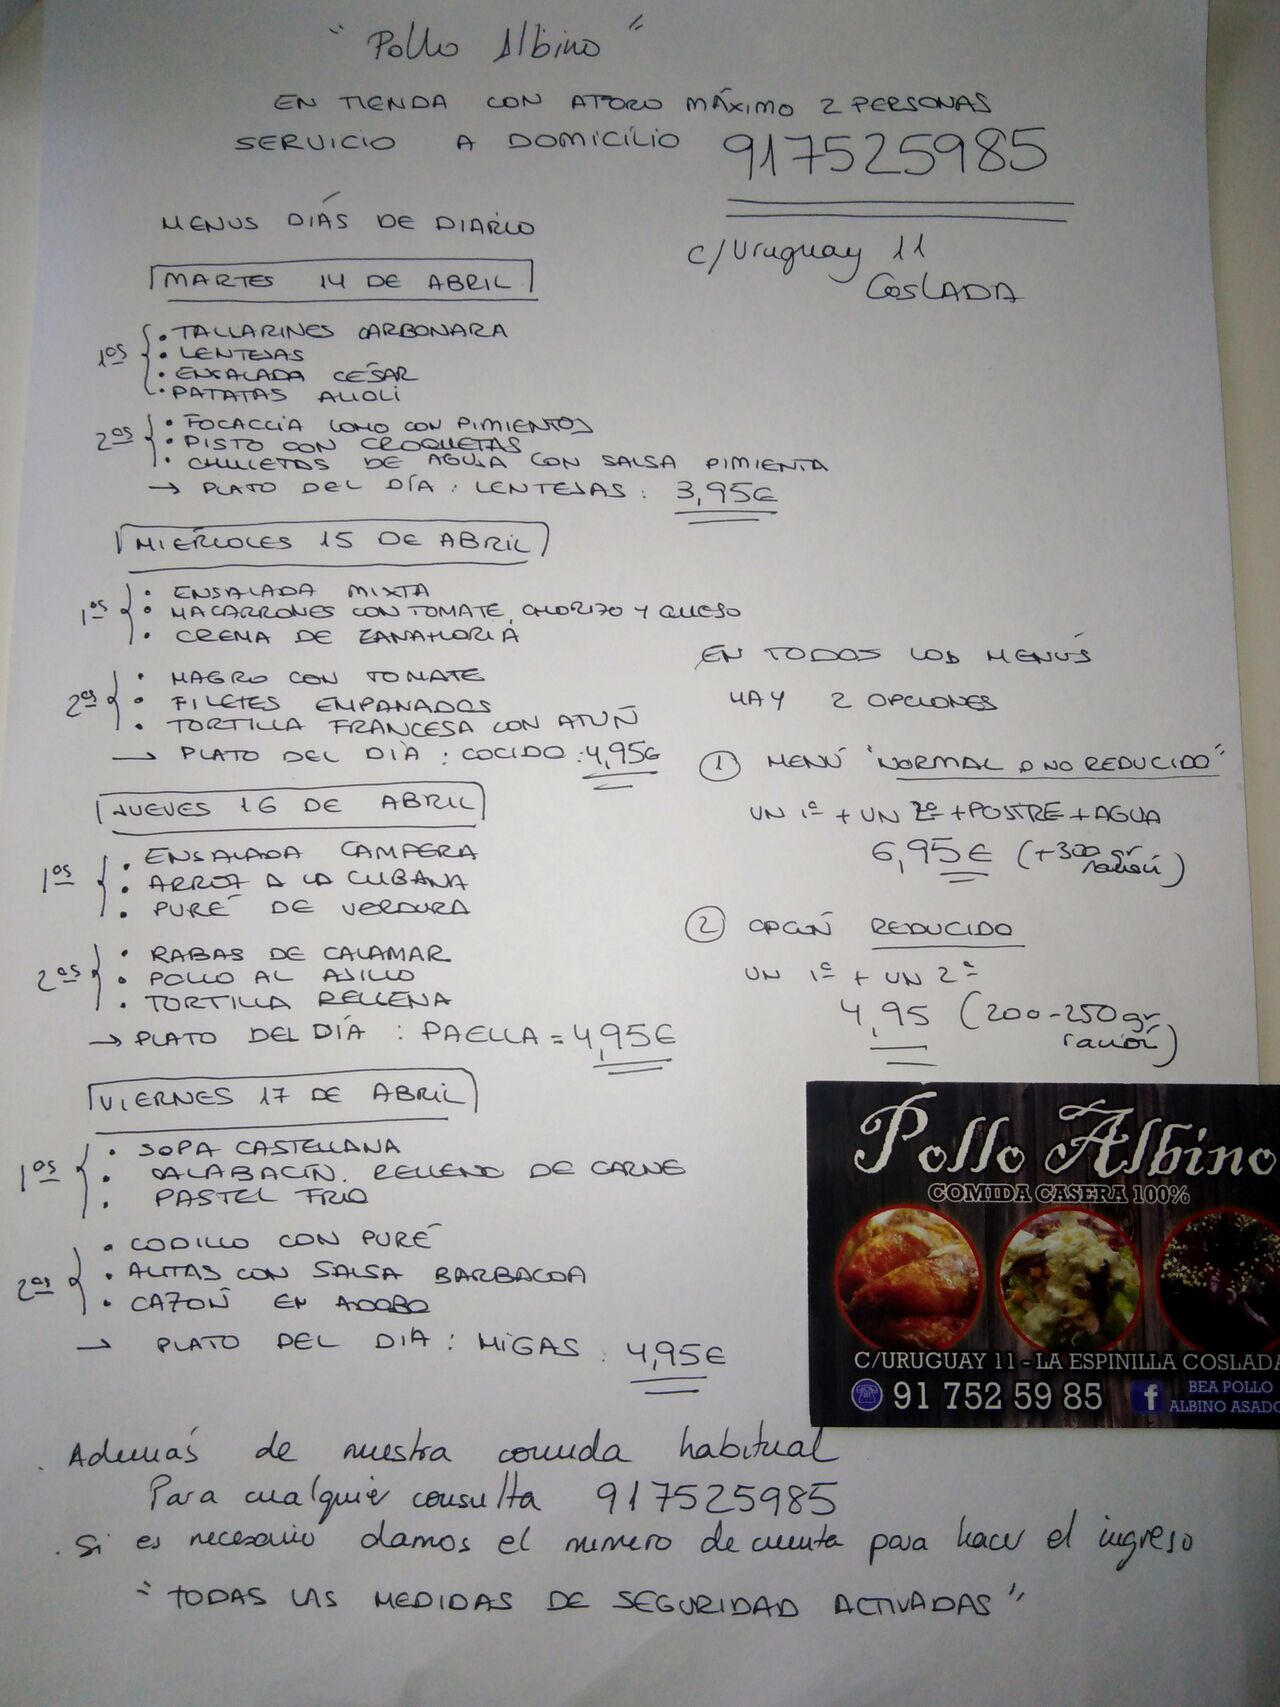 "Pollo Albino"
EN TIENDA CON AFORO MÁXIMO 2 PERSONAS
SERVICIO A DOMICÍLIO 917525985
MENUS DIÁS DE DIARIO
C/Uruguay 11
COSLADA
MARTES 14 DE ABRIL
1os
• TALLARINES CARBONARA
• LENTEJAS
• ENSALADA CÉSAR
• PATATAS ALIOLI
2os
• FOCACCIA LOMO CON PIMIENTOS
• PISTO CON CROQUETAS
• CHULETAS DE AGUJA CON SALSA PIMIENTA
→ PLATO DEL DÍA : LENTEJAS : 3,95€
MIÉRCOLES 15 DE ABRIL
1os
• ENSALADA MIXTA
• MACARRONES CON TOMATE, CHORIZO Y QUESO
• CREMA DE ZANAHORIA
2os
• MAGRO CON TOMATE
• FILETES EMPANADOS
• TORTILLA FRANCESA CON ATÚN
→ PLATO DEL DIA : COCIDO : 4,95€
JUEVES 16 DE ABRIL
1os
• ENSALADA CAMPERA
• ARROZ A LA CUBANA
• PURÉ DE VERDURA
2os
• RABAS DE CALAMAR
• POLLO AL AJILLO
• TORTILLA RELLENA
→ PLATO DEL DÍA : PAELLA = 4,95€
VIERNES 17 DE ABRIL
1os
• SOPA CASTELLANA
• CALABACÍN RELLENO DE CARNE
• PASTEL FRIO
2os
• CODILLO CON PURÉ
• ALITAS CON SALSA BARBACOA
• CAZÓN EN ADOBO
→ PLATO DEL DIA : MIGAS : 4,95€
EN TODOS LOS MENÚS
HAY 2 OPCIONES
① MENÚ "NORMAL O NO REDUCIDO"
UN 1º + UN 2º + POSTRE + AGUA
6,95€ (+300 gr
ración)
② OPCIÓN REDUCIDO
UN 1º + UN 2º
4,95 (200-250 gr
ración)
Pollo Albino
COMIDA CASERA 100%
C/URUGUAY 11 - LA ESPINILLA COSLADA
91 752 59 85
f
BEA POLLO
ALBINO ASADO
. Además de nuestra comida habitual
Para cualquier consulta 917525985
. Si es necesario damos el numero de cuenta para hacer el ingreso
"TODAS LAS MEDIDAS DE SEGURIDAD ACTIVADAS"